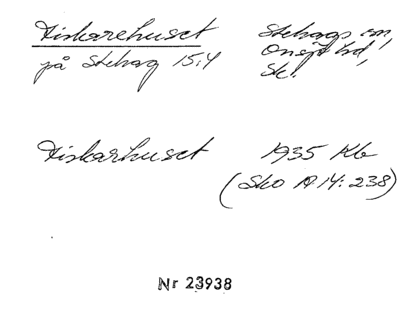 Fiskarehuset
på Stehag 15:4
Stehags sn,
Onsjö hd,
Sk.
Fiskarhuset
1935 Kb
(Sko A 14: 238)
Nr 23938